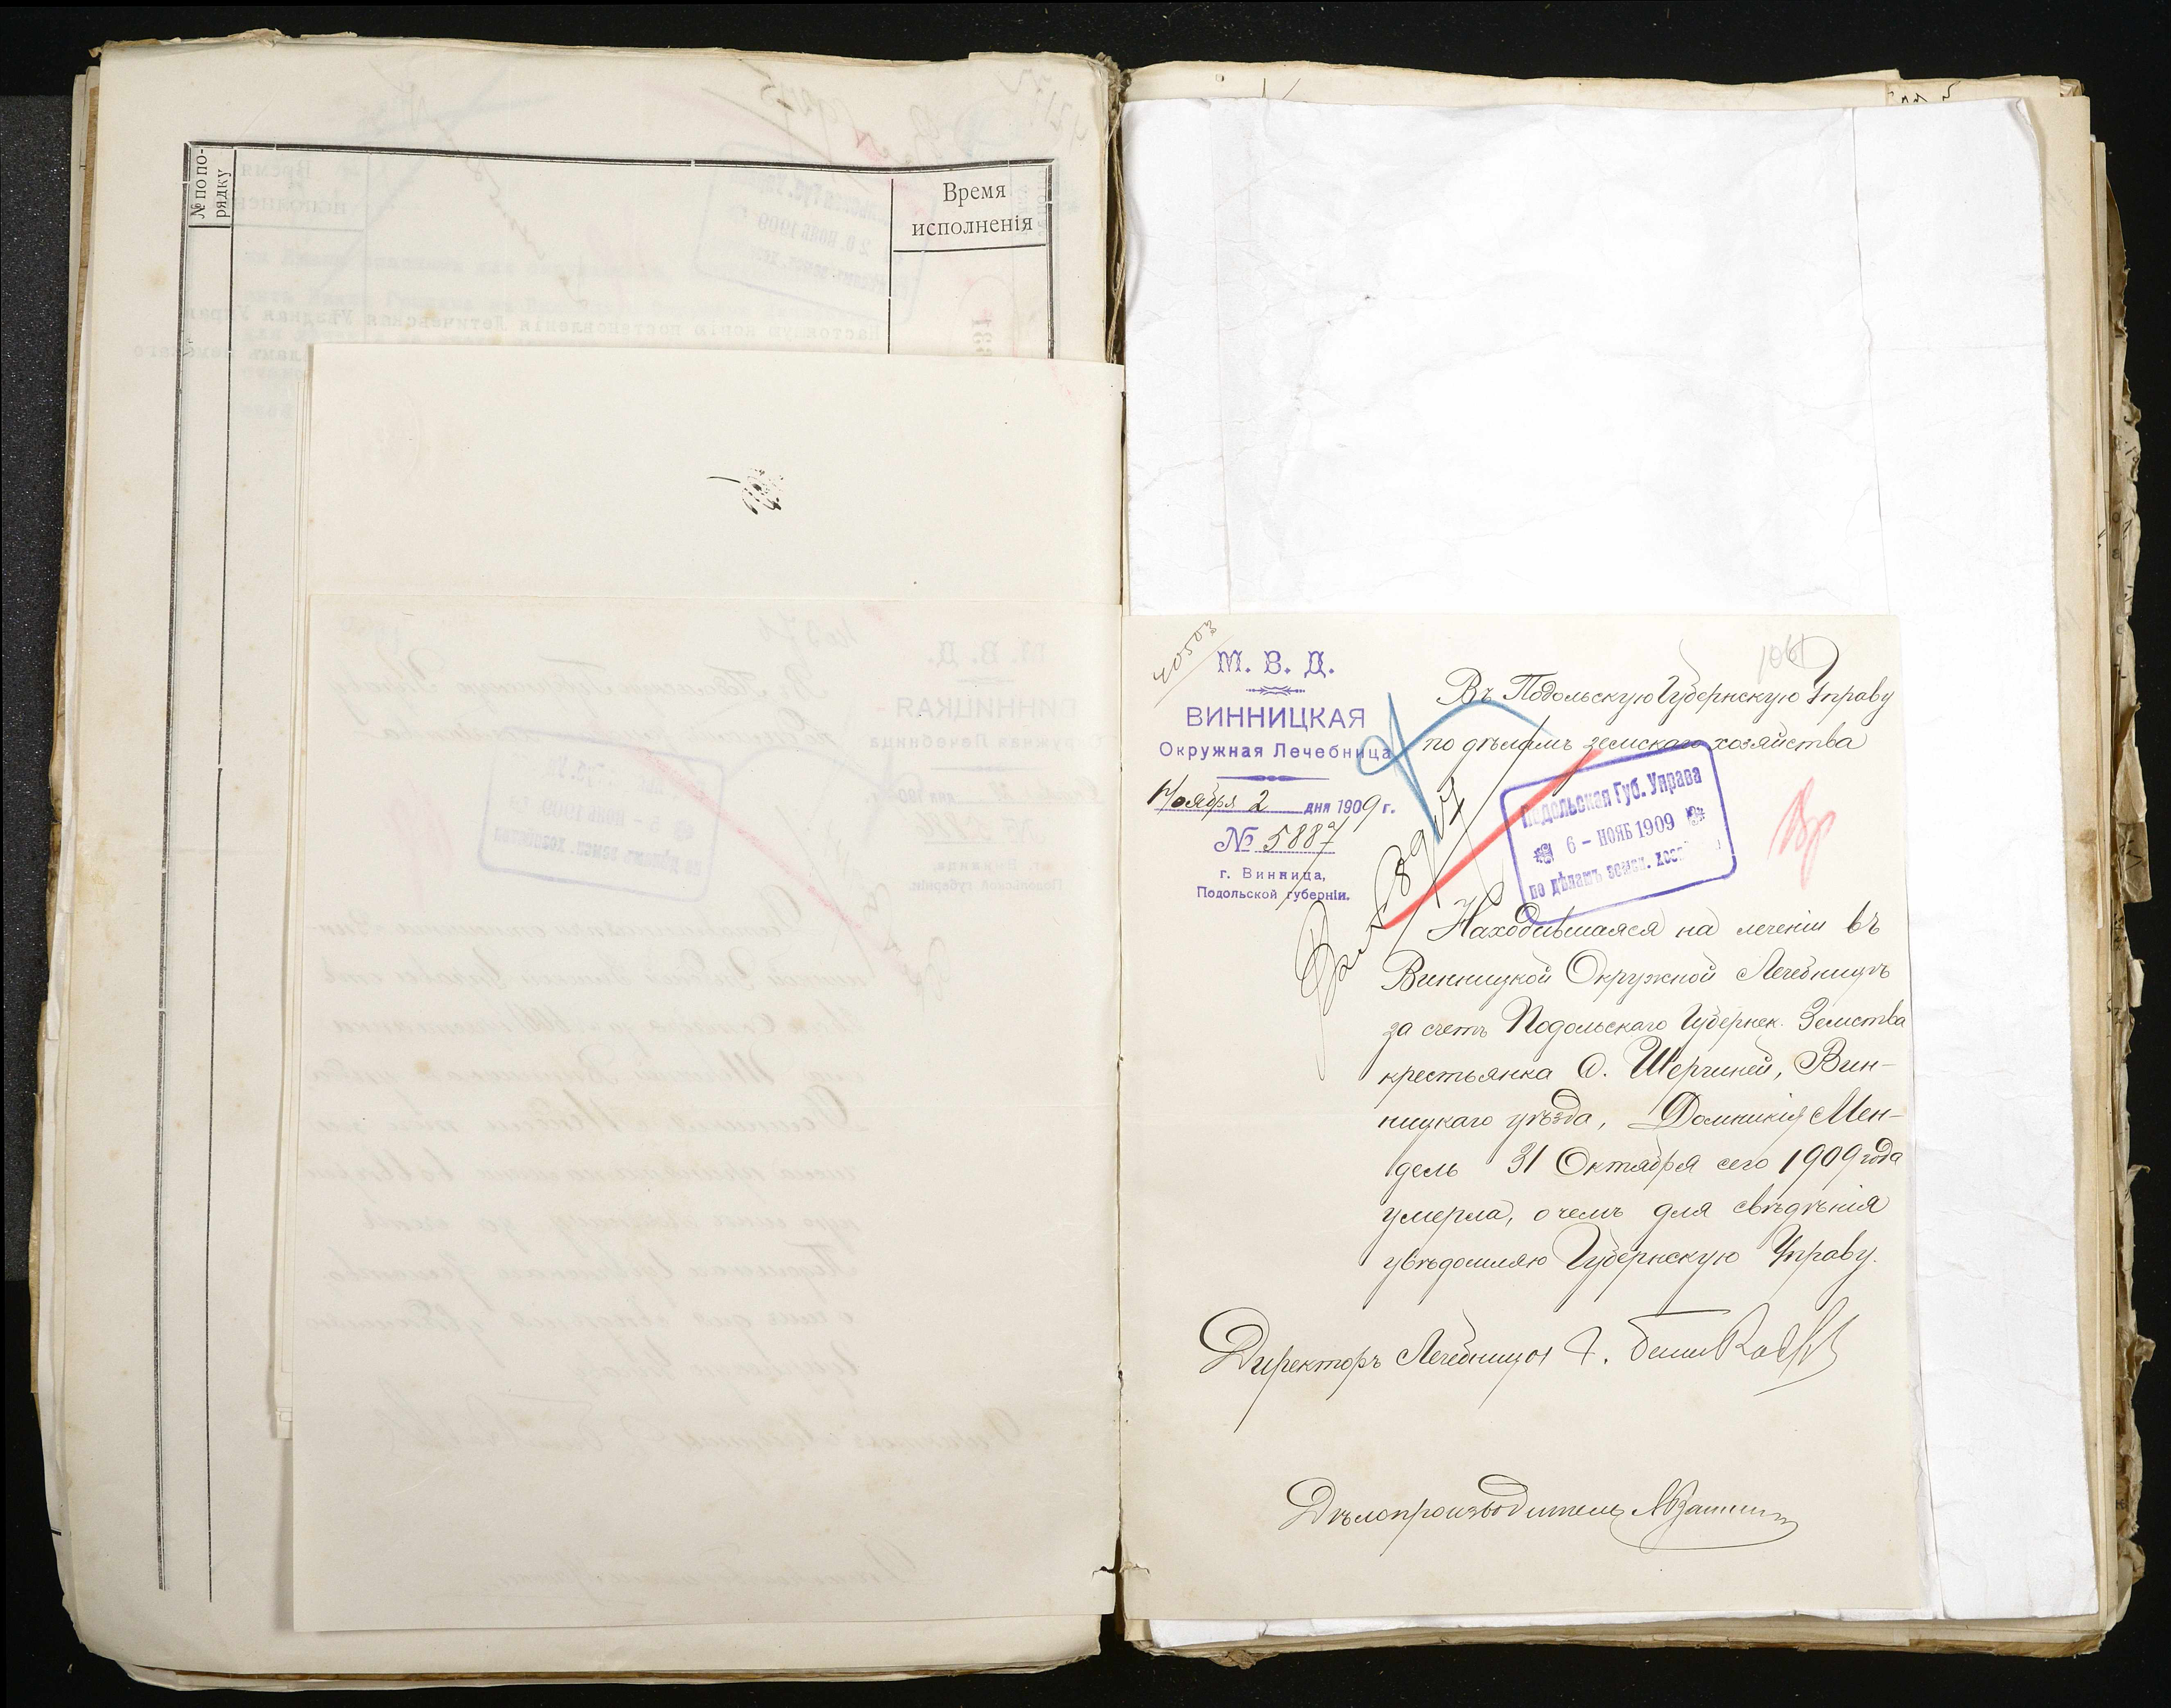 № по по-
рядку
Время
исполненія
40503
1061
М. В. Д.
ВИННИЦКАЯ
Окружная Лечебница
Ноября 2 дня 1909 г.
№ 5887
г. Винница,
Подольской губерніи.
Въ Подольскую Губернскую Управу
по дѣламъ земскаго хозяйства
Подольская Губ. Управа
6 - НОЯБ 1909
по дѣламъ земск. хоз
Находившаяся на леченіи въ
Винницкой Окружной Лечебницѣ
за счетъ Подольскаго Губернск. Земства
крестьянка с. Шершней, Вин-
ницкаго уѣзда, Домникія Мен-
дель 31 Октября сего 1909 года
умерла, о чемъ для свѣдѣнія
увѣдомляю Губернскую Управу.
Директоръ Лечебницы
Дѣлопроизводитель